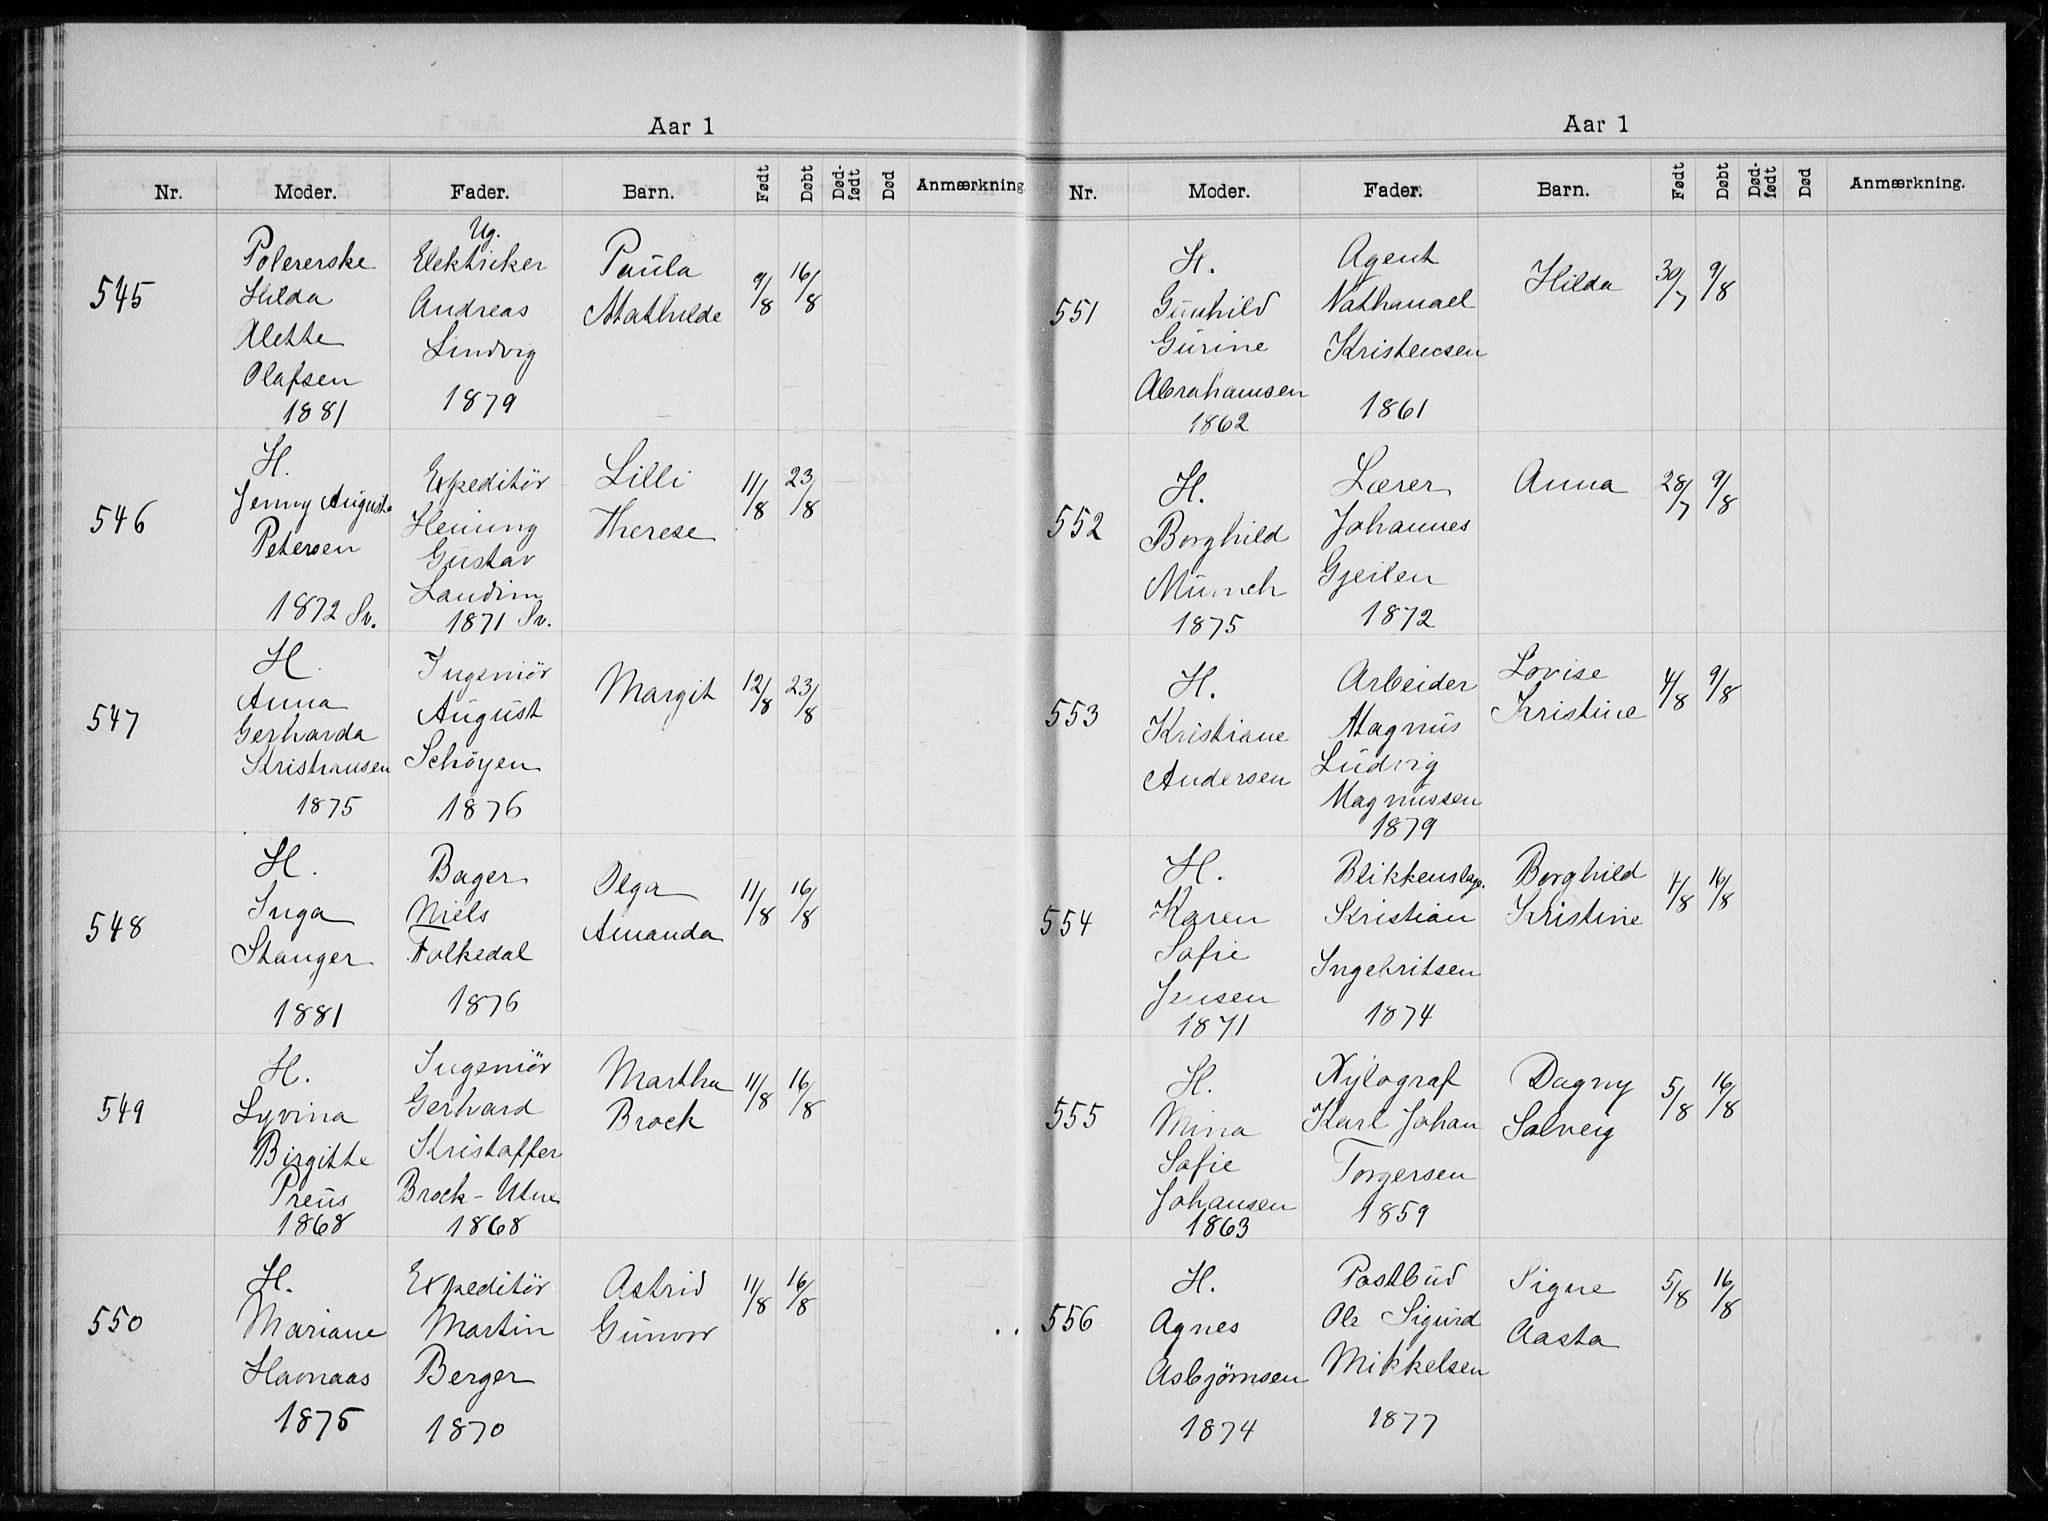 Aar 1
Nr. Moder. Fader. Barn. Født Døbt Død-født Død Anmærkning.
545
Polererske
Hilda
Alette
Olafsen
1881
Ug.
Elektriker
Andreas
Lindvig
1879
Paula
Mathilde
9/8 16/8
546
H.
Jenny Augusta
Petersen
1872 Sv.
Expeditör
Heming
Gustav
Landim
1871 Sv.
Lilli
Therese
11/8 23/8
547
H.
Anna
Gerharda
Kristiansen
1875
Ingeniör
August
Schöyen
1876
Margit
12/8 23/8
548
H.
Inga
Stanger
1881
Bager
Niels
Folkedal
1876
Olga
Amanda
11/8 16/8
549
H.
Lyvina
Birgitte
Preus
1868
Ingeniör
Gerhard
Kristoffer
Brock-Utne
1868
Martha
Brock
11/8 16/8
550
H.
Mariane
Havnaas
1875
Expeditör
Martin
Berger
1870
Astrid
Gunvor
11/8 16/8
Aar 1
Nr. Moder. Fader. Barn. Født Døbt Død-født Død Anmærkning.
551
H.
Gunhild
Gurine
Abrahamsen
1862
Agent
Nathanael
Kristensen
1861
Hilda
30/7 9/8
552
H.
Borghild
Munch
1875
Lærer
Johannes
Gjeilen
1872
Anna
28/7 9/8
553
H.
Kristiane
Andersen
Arbeider
Magnus
Ludvig
Magnussen
1879
Lovise
Kristine
4/8 9/8
554
H.
Karen
Sofie
Jensen
1871
Blikkenslag.
Kristian
Ingebritsen
1874
Borghild
Kristine
4/8 16/8
555
H.
Mina
Sofie
Johansen
1863
Xylograf
Karl Johan
Torgersen
1859
Dagny
Solveig
5/8 16/8
556
H.
Agnes
Asbjørnsen
1874
Postbud
Ole Sigurd
Mikkelsen
1877
Signe
Aasta
5/8 16/8